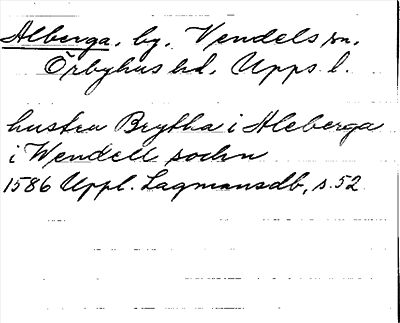 Alberga. by. Vendels sn.
Örbyhus hd. Upps l.
hustru Brytha i Aleberga
i Wendell sochn
1586 Uppl. Lagmansdb, s. 52